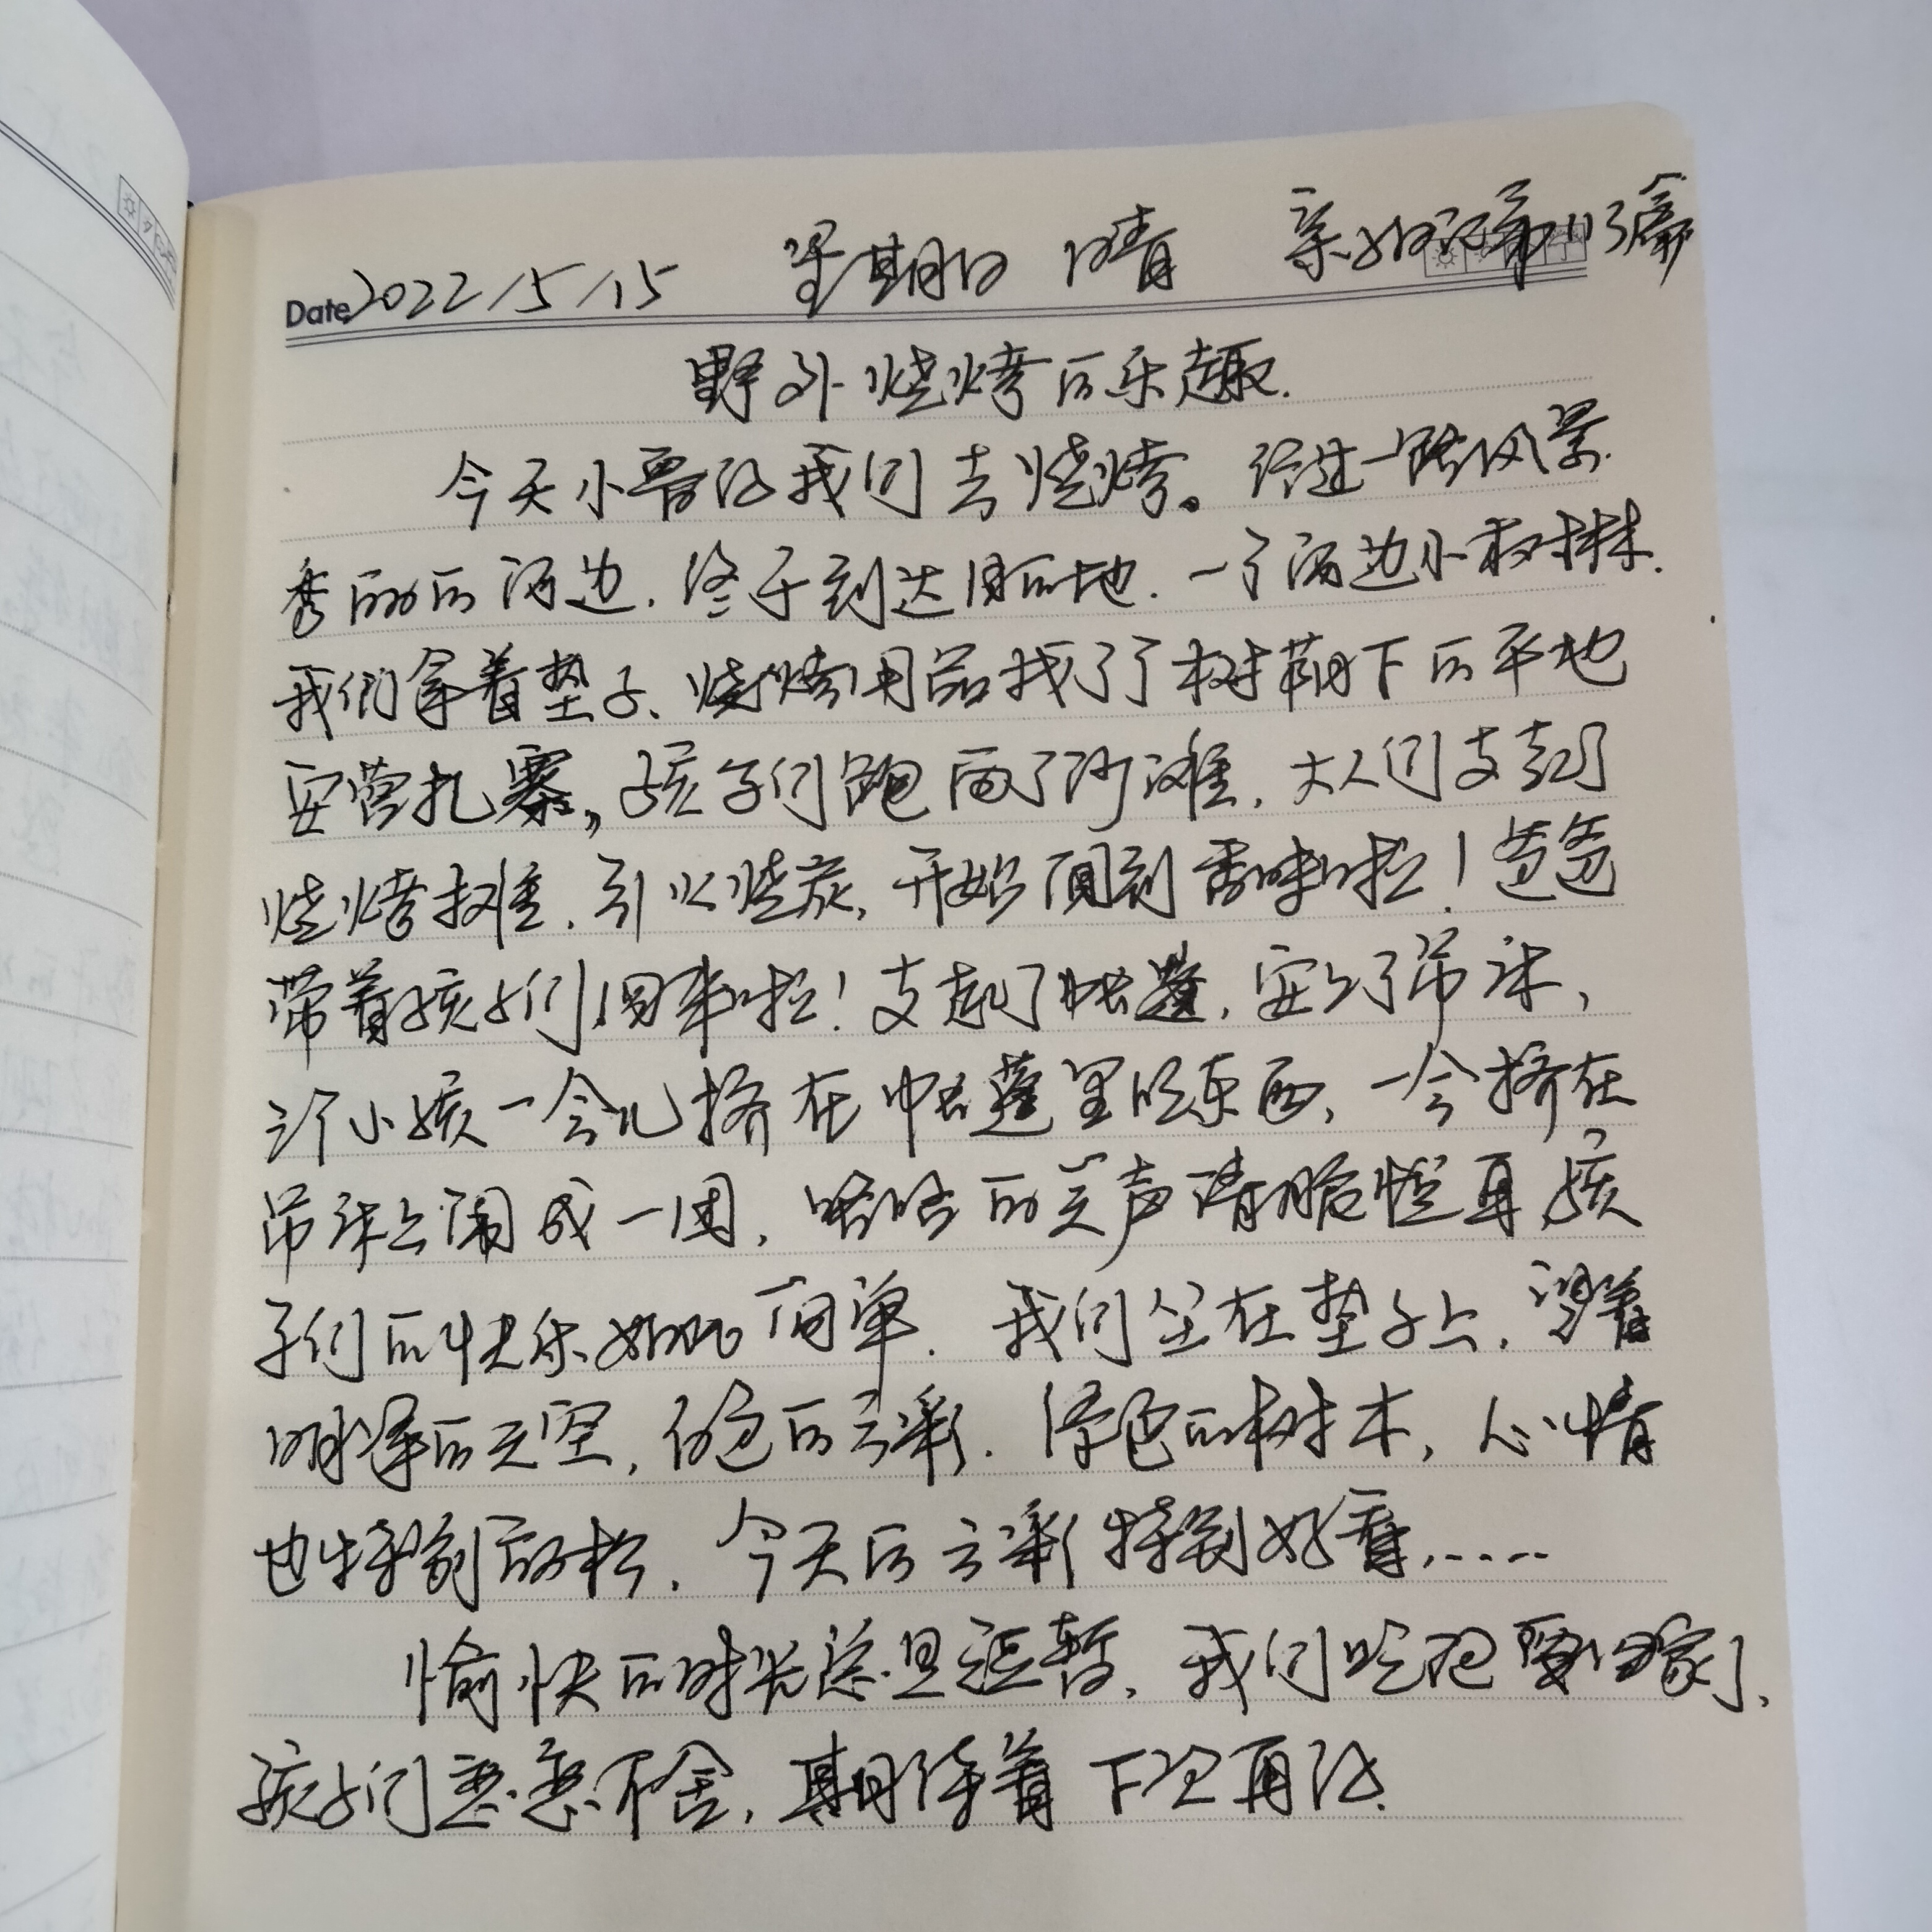 Date 2022/5/15 星期日 晴 亲子日记第113篇
野外烧烤的乐趣.
今天小哥约我们去烧烤。经过一路风景
秀丽的河边.终于到达目的地.一个河边小树林.
我们拿着垫子、烧烤用品找了个树荫下的平地
安营扎寨,孩子们跑向了沙滩.大人们支起了
烧烤摊.引火烧炭,开始 顷刻香味啦!爸爸
带着孩子们回来啦!支起了帐蓬.安上了吊床,
三个小孩一会儿挤在帐蓬里吃东西,一会挤在
吊床上闹成一团,咯咯的笑声清脆悦耳,孩
子们的快乐如此简单.我们坐在垫子上.望着
明净的天空,白色的云彩.绿色的树木,心情
也特别放松.今天的云彩特别好看......
愉快的时光总是短暂,我们吃饱要回家了,
孩子们恋恋不舍,期待着下次再约.